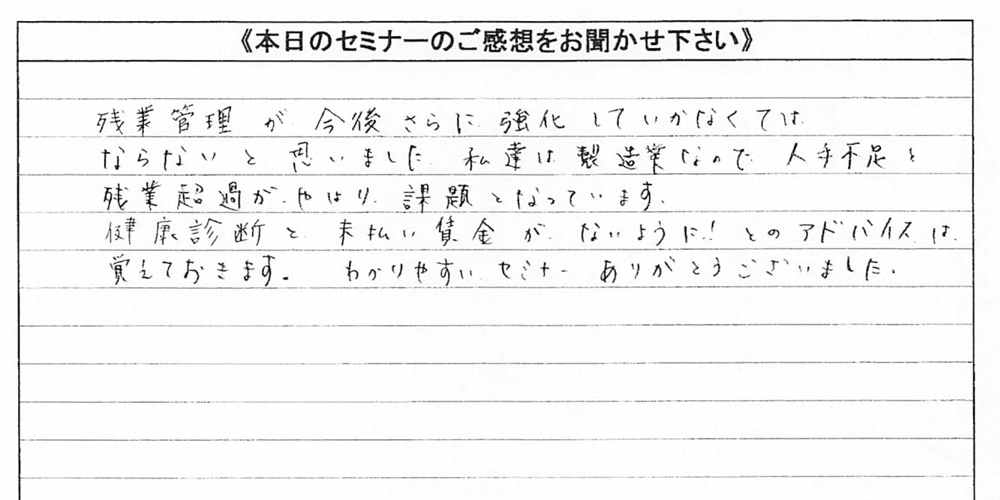 《本日のセミナーのご感想をお聞かせ下さい》
残業管理が今後さらに強化していかなくては
ならないと思いました。私達は製造業なので、人手不足と
残業超過がやはり課題となっています。
健康診断と未払い賃金がないように!とのアドバイスは
覚えておきます。わかりやすいセミナーありがとうございました。